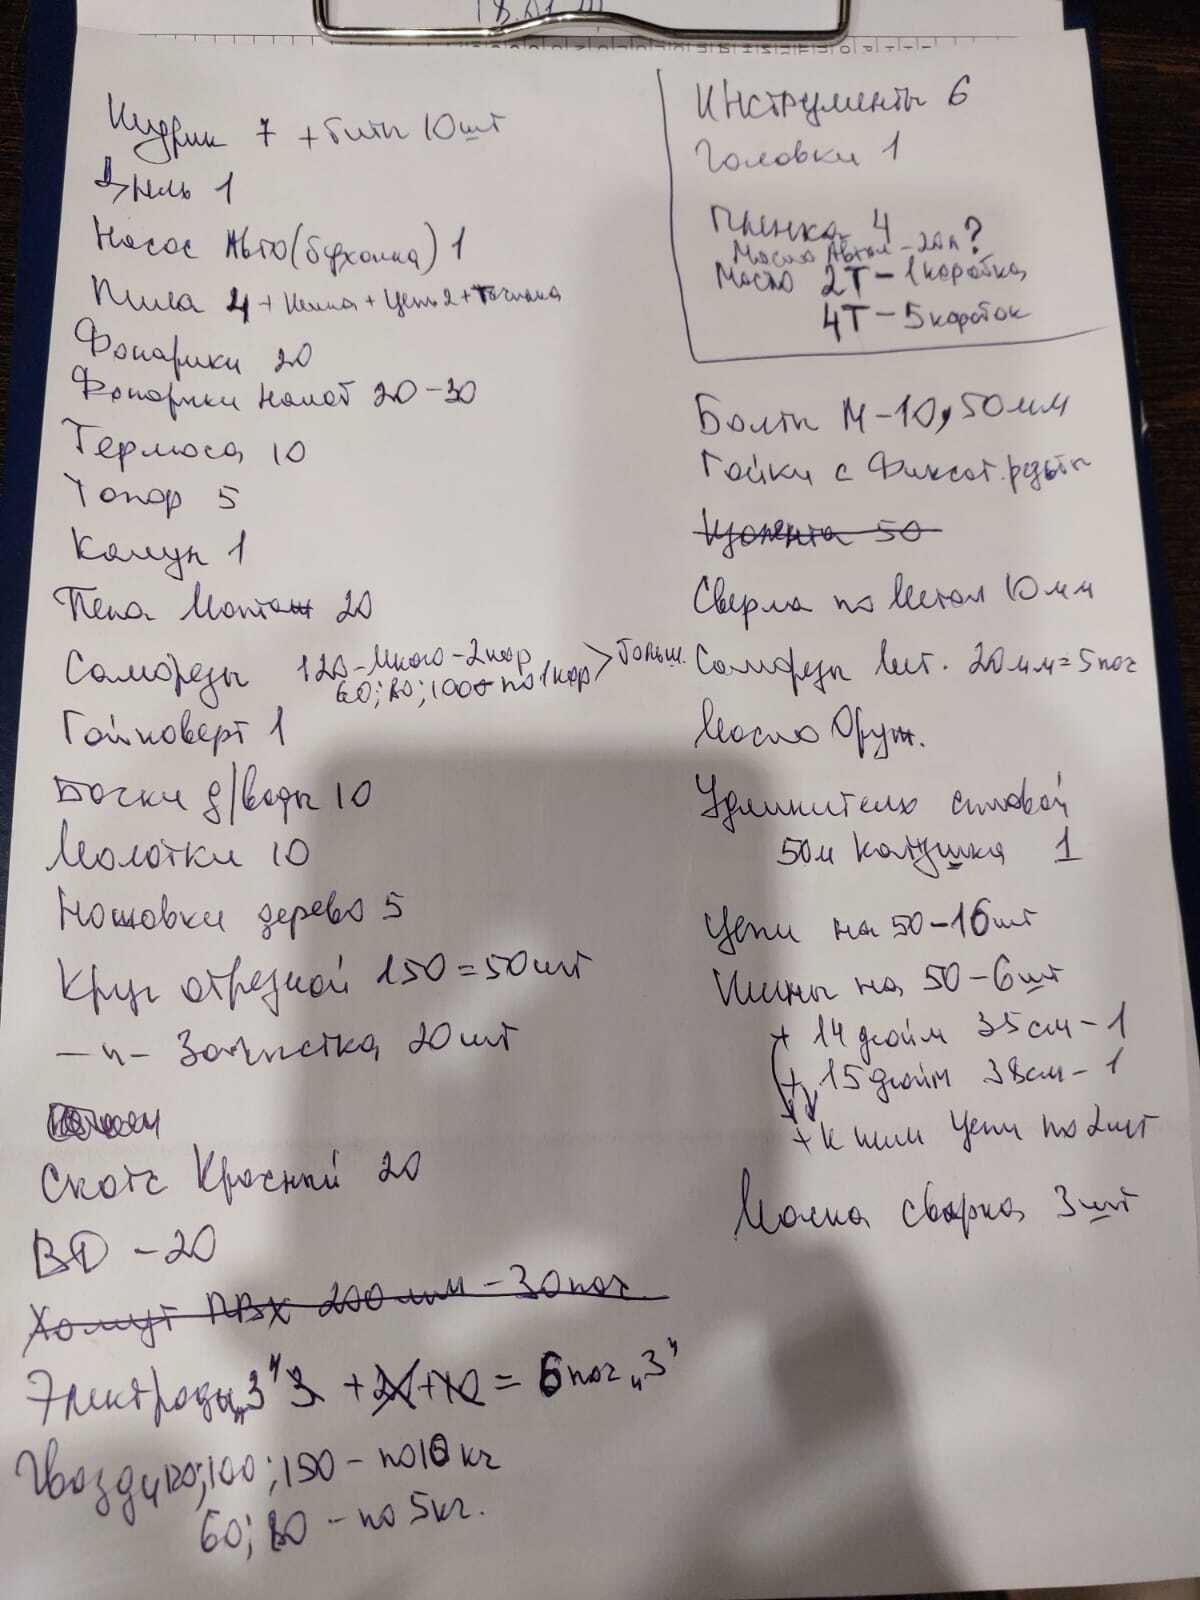 18.01
Шудрик 7 + биты 10шт
Дрель 1
Насос Авто (буханка) 1
Пила 4 + шина + цепь 2 + точилка
Фонарики 20
Фонарики налоб 20-30
Термоса 10
Топор 5
Колун 1
Пена Монтаж 20
Саморезы 120-много-2кор
60; 80; 100 по 1кор > больш.
Гайковерт 1
Бочки д/воды 10
Молотки 10
Ножовки дерево 5
Круг отрезной 150=50шт
-"- Зачистка 20шт
Скотч Красный 20
ВД -20
Хомут ПВХ 200мм-30пач.
Электроды "3" = 6пач "3"
Гвозди 120; 100; 150 - по 10 кг
60; 80 - по 5кг.
Инструменты 6
Головки 1
Пленка 4
Масло Автол -20л?
Масло 2Т-1коробка
4Т-5коробок
Болты М-10, 50мм
Гайки с Фиксат. резьбы
Изолента 50
Сверла по Метал 10мм
Саморезы 20мм=5пач
Масло Оруж.
Удлинитель силовой
50м катушка 1
Цепи на 50-16шт
Шины на 50-6шт
+ 14 дюйм 35см-1
+ 15 дюйм 38см-1
+ к ним цепи по 2шт
Маска сварка 3шт